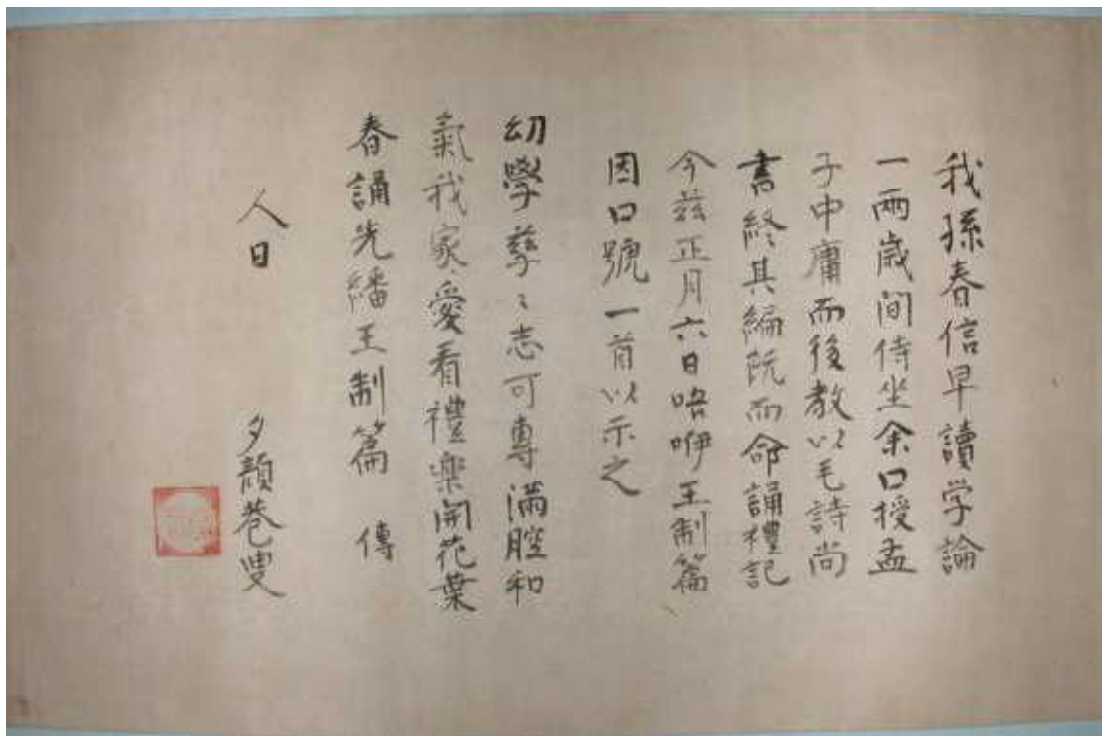 我孫春信早讀学論
一兩歳间侍坐余口授孟
子中庸而後教以毛詩尚
書終其編既而命誦禮記
今茲正月六日咯咿王制篇
因口號一首以示之
幼學孳〻志可專滿腔和
氣我家愛看禮樂開花葉
春誦先繙王制篇 傳
人日 夕顔巷叟